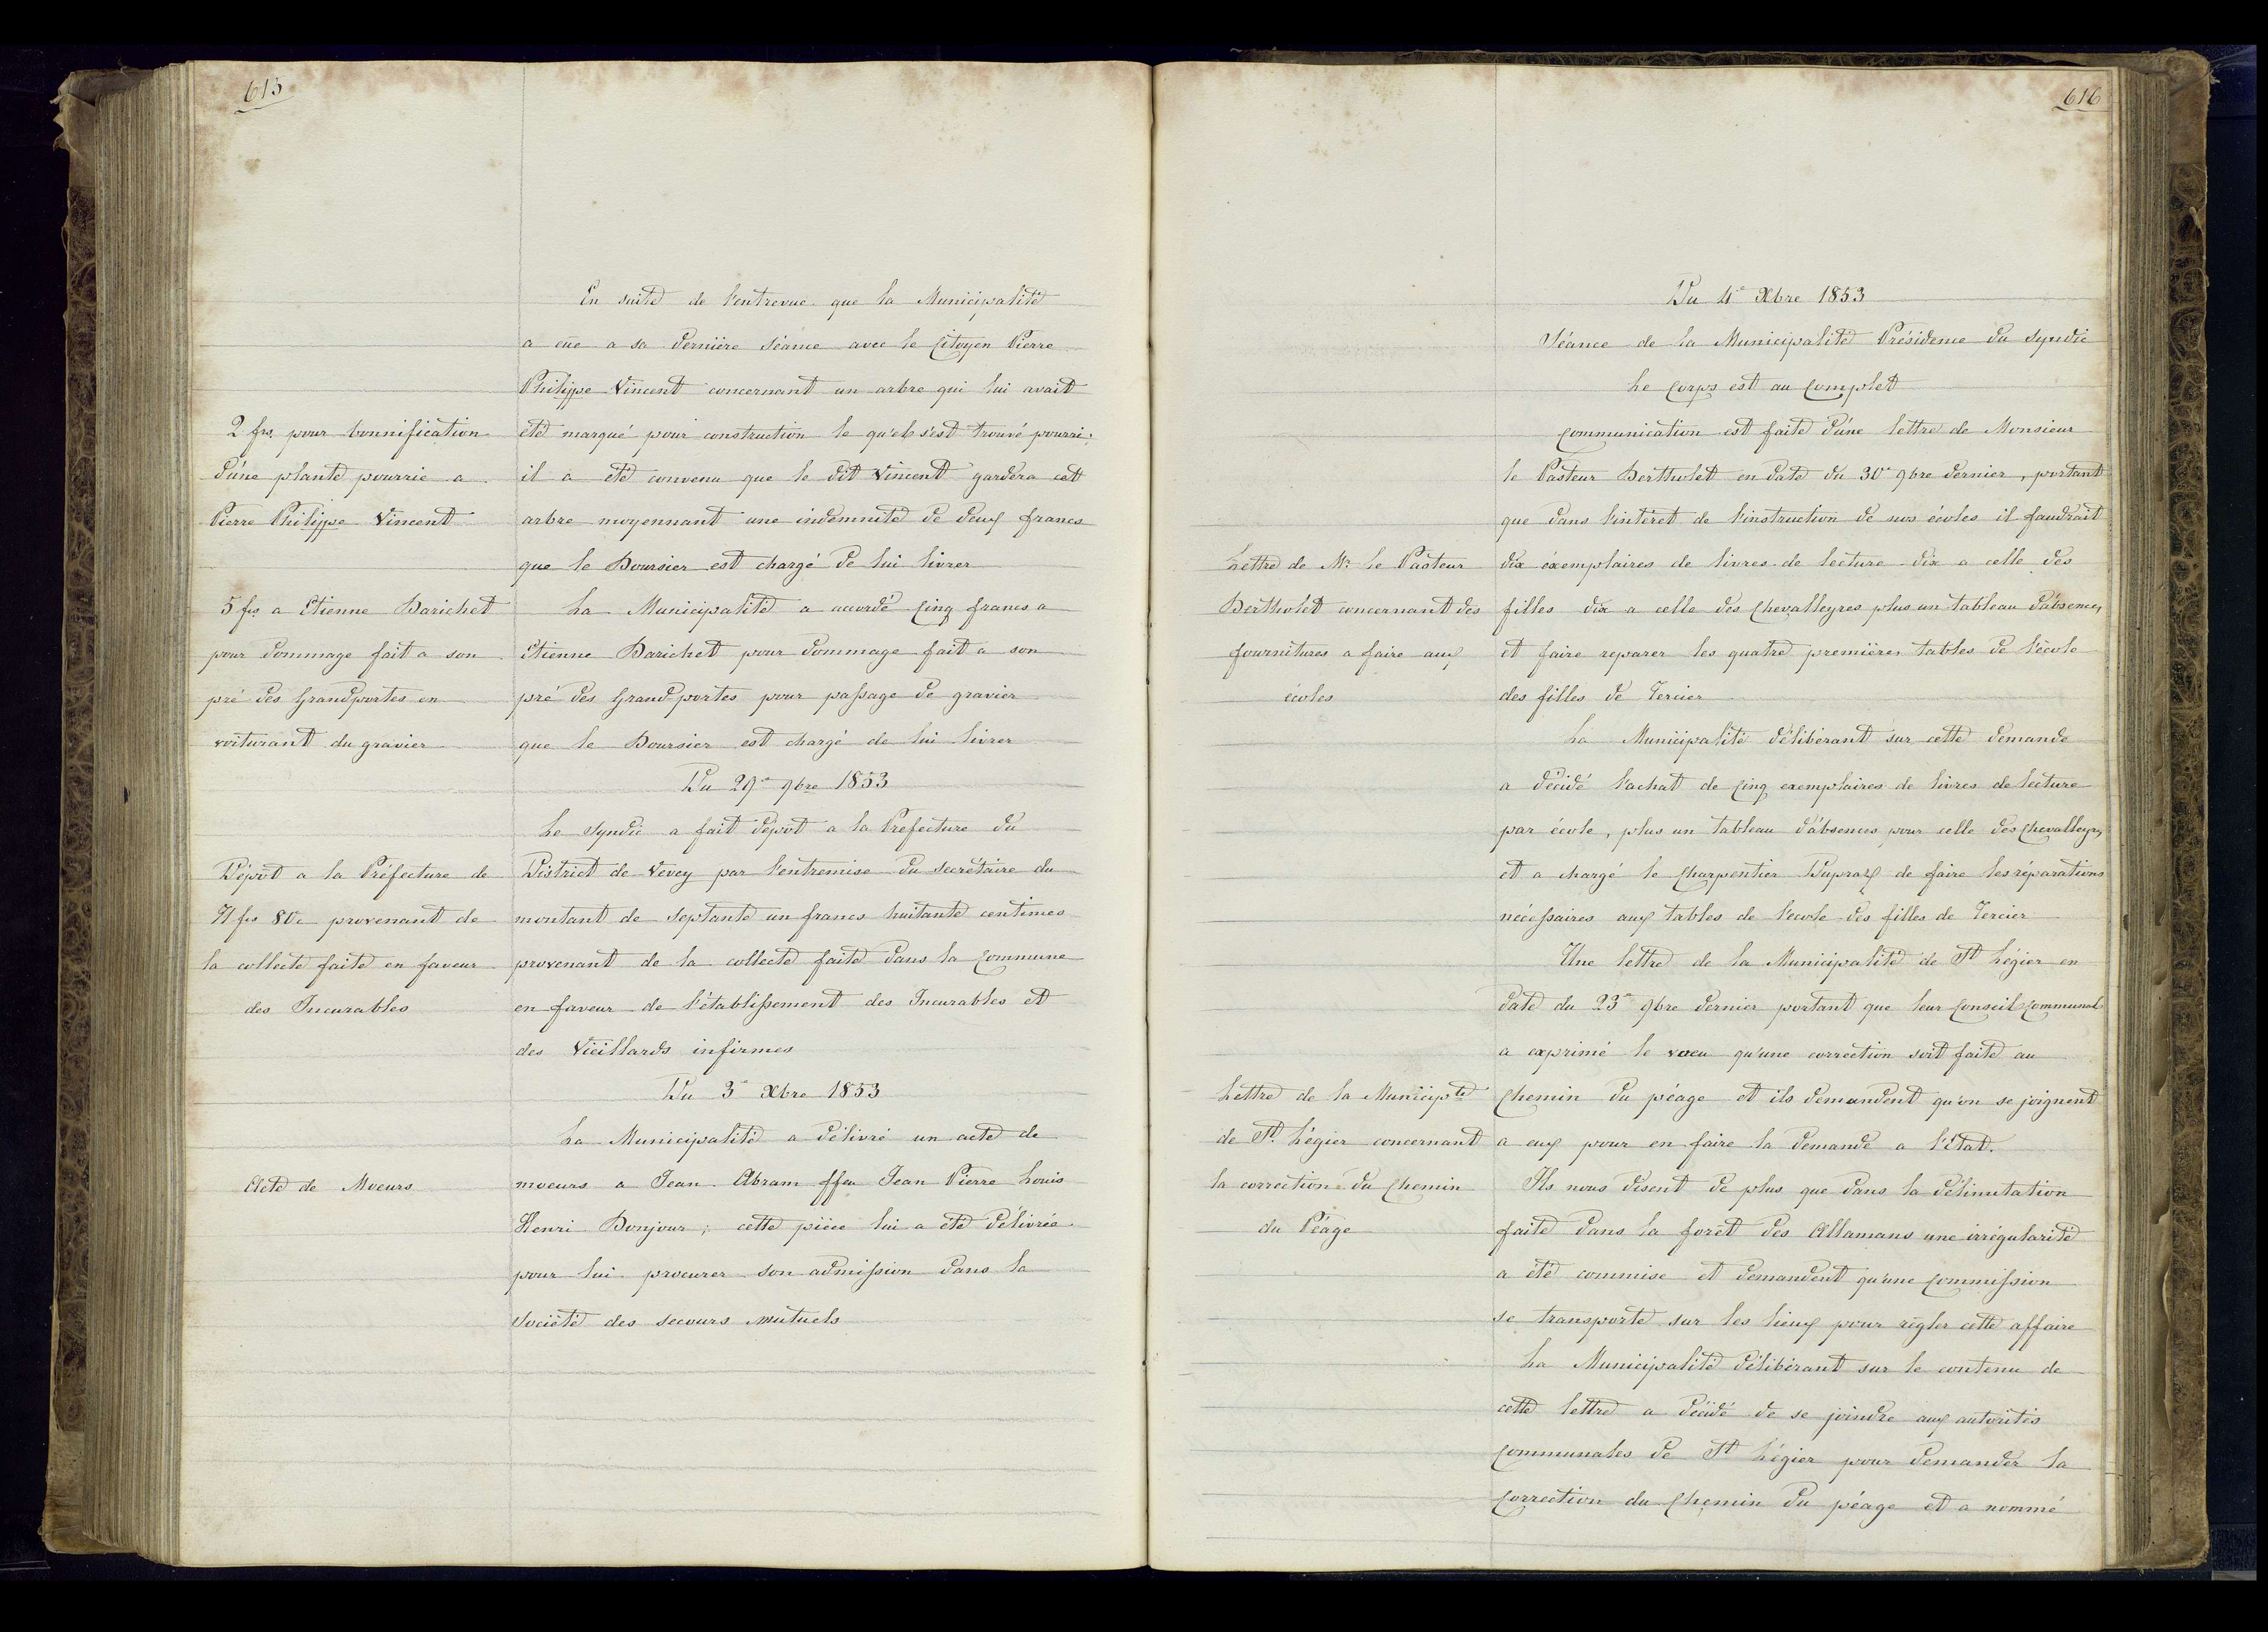 615
En suite de l'entrevue que la Municipalité
a eüe a sa dernière séance avec le Citoyen Pierre
Philippe Vincent concernant un arbre qui lui avait
2 frs. pour bonnification
été marqué pour construction le qu'el s'est trouvé pourri;
d'une plante pourrie a
il a été convenu que le dit Vincent gardera cet
Pierre Philippe Vincent
arbre moyennant une indemnité de deux francs
que le Boursier est chargé de lui livrer
5 frs a Etienne Barichet
La Municipalité a accordé Cinq francs a
pour dommage fait a son
Etienne Barichet pour dommage fait a son
pré des Grandportes en
pré des Grandportes pour passage de gravier
voiturant du gravier
que le Boursier est chargé de lui livrer
Du 29e 9bre 1853
Le Syndic a fait dépôt a la Préfecture du
Dépôt a la Préfecture de
District de Vevey par l'entremise du Secrétaire du
71 frs 80c provenant de
montant de Septante un francs huitante centimes
la collecte faite en faveur
provenant de la collecte faite dans la Commune
des Incurables
en faveur de l'établissement des Incurables et
des Vieillards infirmes
Du 3e Xbre 1853
La Municipalité a délivré un acte de
Acte de Moeurs
moeurs a Jean Abram ffeu Jean Pierre Louis
Henri Bonjour; cette pièce lui a été délivrée
pour lui procurer son admission dans la
Société des secours mutuels
616
Du 4e Xbre 1853
Séance de la Municipalité Présidence du Syndic
Le Corps est au Complet
Communication est faite d'une lettre de Monsieur
le Pasteur Bertholet en date du 30e 9bre dernier, portant
que dans l'intéret de l'instruction de nos écoles il faudrait
Lettre de Mr. le Pasteur
dix éxemplaires de livres de lecture dix a celle des
Bertholet concernant des
filles dix a celle des Chevalleyres plus un tableau d'absences,
fournitures a faire aux
et faire reparer les quatre premières tables de l'école
écoles
des filles de Tercier
La Municipalité délibérant sur cette demande
a décidé l'achat de Cinq exemplaires de livres de lecture
par école, plus un tableau d'absences pour celle des Chevalleyres,
et a chargé le Charpentier Dupraz de faire les réparations
nécessaires aux tables de l'ecole des filles de Tercier
Une lettre de la Municipalité de St Légier en
date du 23e 9bre dernier portant que leur Conseil Communal
a exprimé le voeu qu'une correction soit faite au
Lettre de la Municipte
Chemin du péage et ils demandent qu'on se joignent
de St. Légier concernant
a eux pour en faire la demande a l'Etat.
la correction du Chemin
Ils nous disent de plus que dans la délimitation
du Péage
faite dans la forêt des Allamans une irrégularité
a été commise et demandent qu'une Commission
se transporte sur les lieux pour régler cette affaire
La Municipalité délibérant sur le contenu de
cette lettre a décidé de se joindre aux autorités
Communales de St Légier pour demander la
Correction du Chemin du péage et a nommé